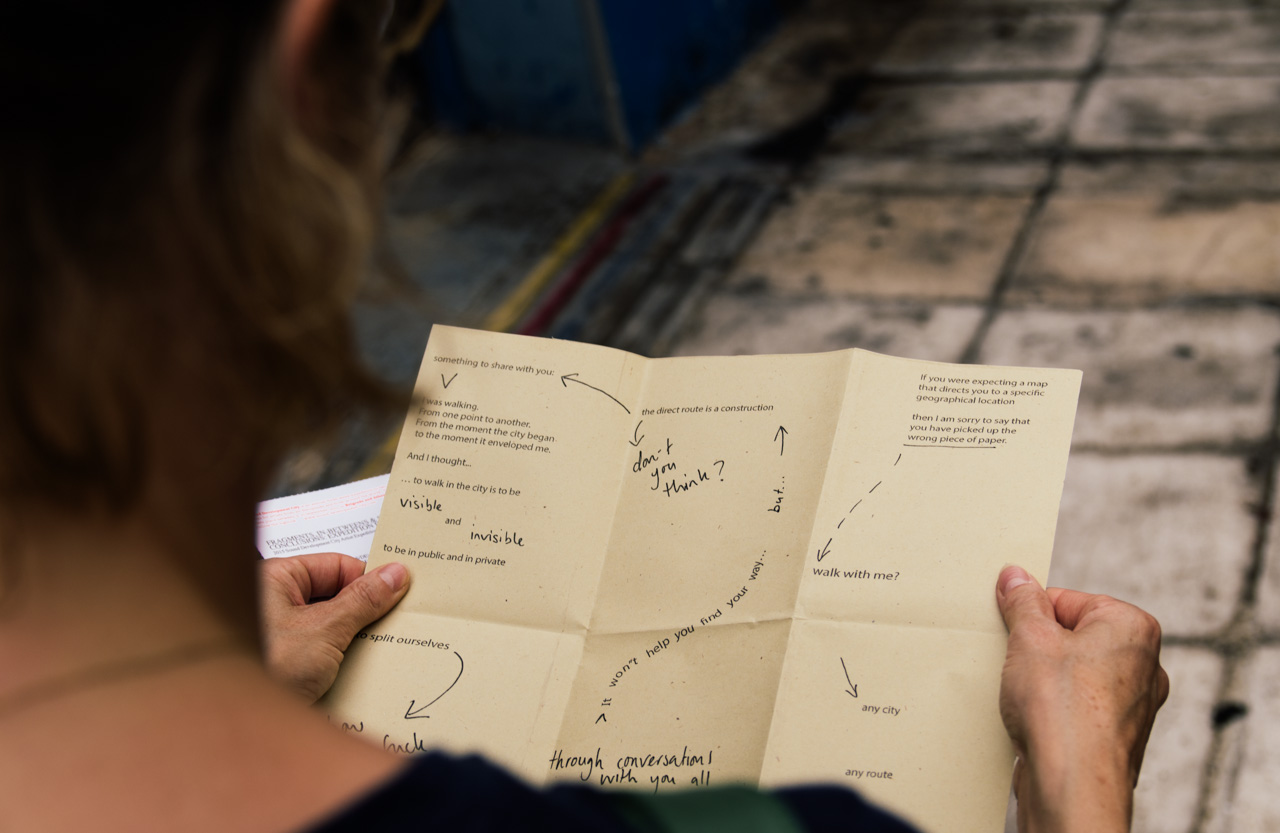 something to share with you:
I was walking.
From one point to another,
From the moment the city began
to the moment it enveloped me.
And I thought...
... to walk in the city is to be
visible
and
invisible
to be in public and in private
to split ourselves
the direct route is a construction
don't
you
think?
but...
It won't help you find your way...
through conversations
with you all
If you were expecting a map
that directs you to a specific
geographical location
then I am sorry to say that
you have picked up the
wrong piece of paper.
walk with me?
any city
any route
FRAGMENTS, IN BETWEENS &
CONCLUSIONS: EXPEDITION